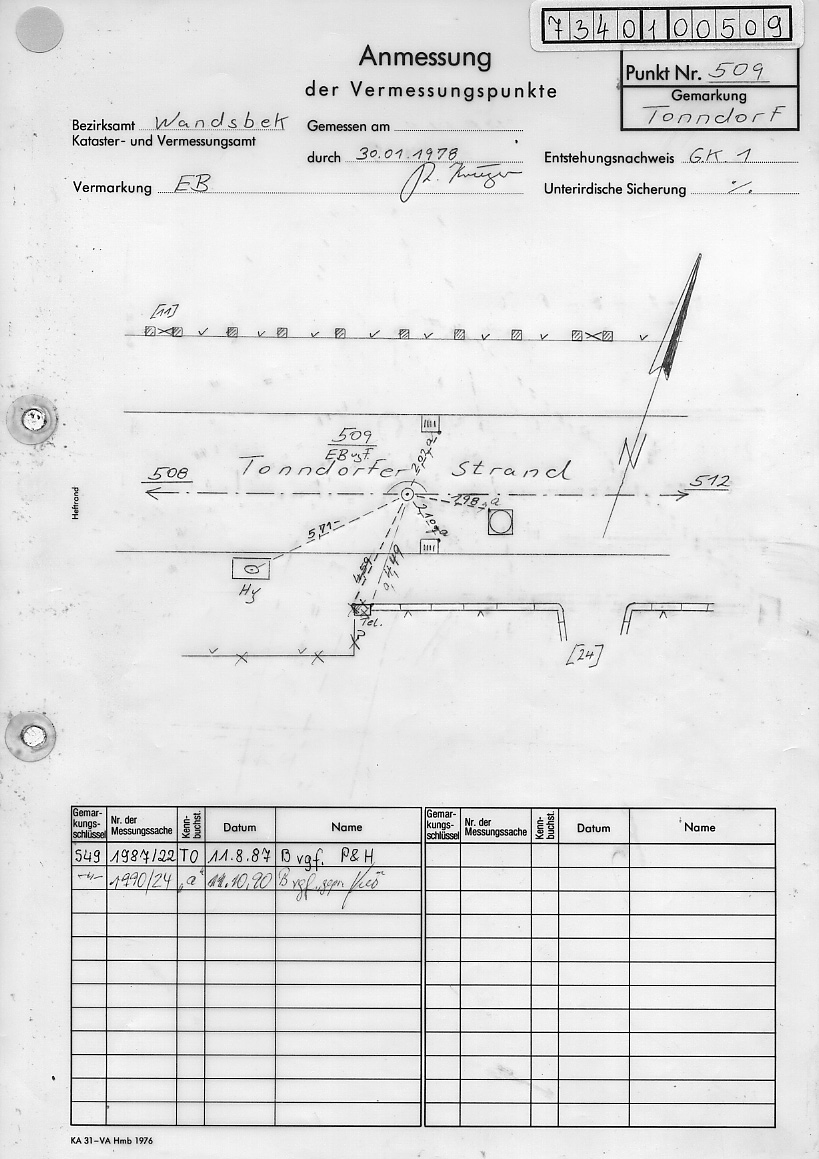 7340100509
Anmessung
der Vermessungspunkte
Punkt Nr. 509
Gemarkung
Tonndorf
Bezirksamt Wandsbek
Kataster- und Vermessungsamt
Gemessen am
durch 30.01.1978
Entstehungsnachweis G.K 1
Vermarkung EB
Unterirdische Sicherung ./.
[11]
509
EB vgf.
Tonndorfer Strand
508
512
N
2,02 a
1,98 a
2,10 a
5,71
4,59
Hy
Tel.
[24]
Heftrand
Gemar-kungs-schlüssel Nr. der Messungssache Kenn-buchst. Datum Name
Gemar-kungs-schlüssel Nr. der Messungssache Kenn-buchst. Datum Name
549 1987/22 TO 11.8.87 B vgf. P&H
-"- 1990/24 "a" 11.10.90 B vgf.
KA 31–VA Hmb 1976